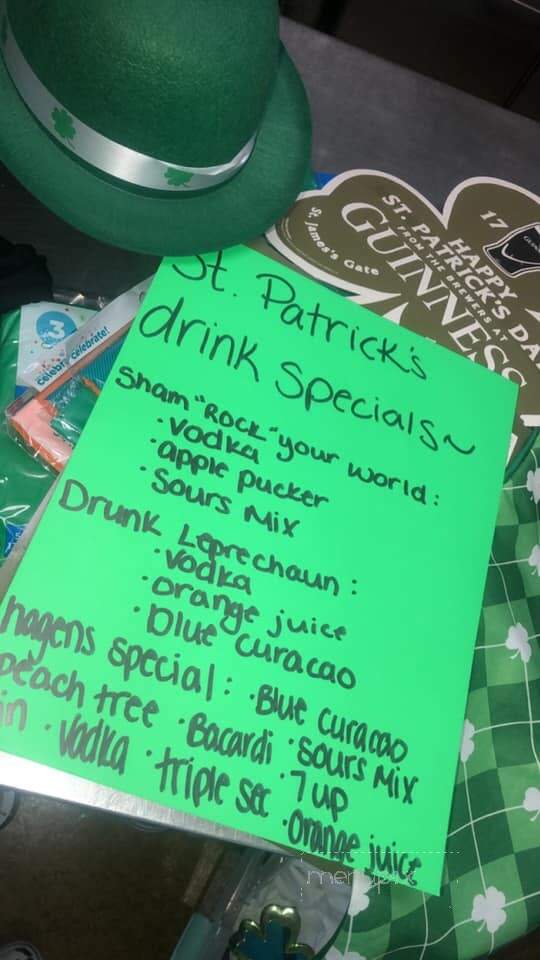 St. Patrick's
drink specials~
Sham "Rock" your world:
· vodka
· apple pucker
· sours mix
Drunk Leprechaun:
· vodka
· orange juice
· blue curacao
hagens special: · Blue curacao
peach tree · Bacardi · sours mix
in · vodka · triple sec · 7 up
· orange juice
17
HAPPY
ST. PATRICK'S DA
FROM THE BREWERS AT
GUINNESS
St. James's Gate
3
celebrate!